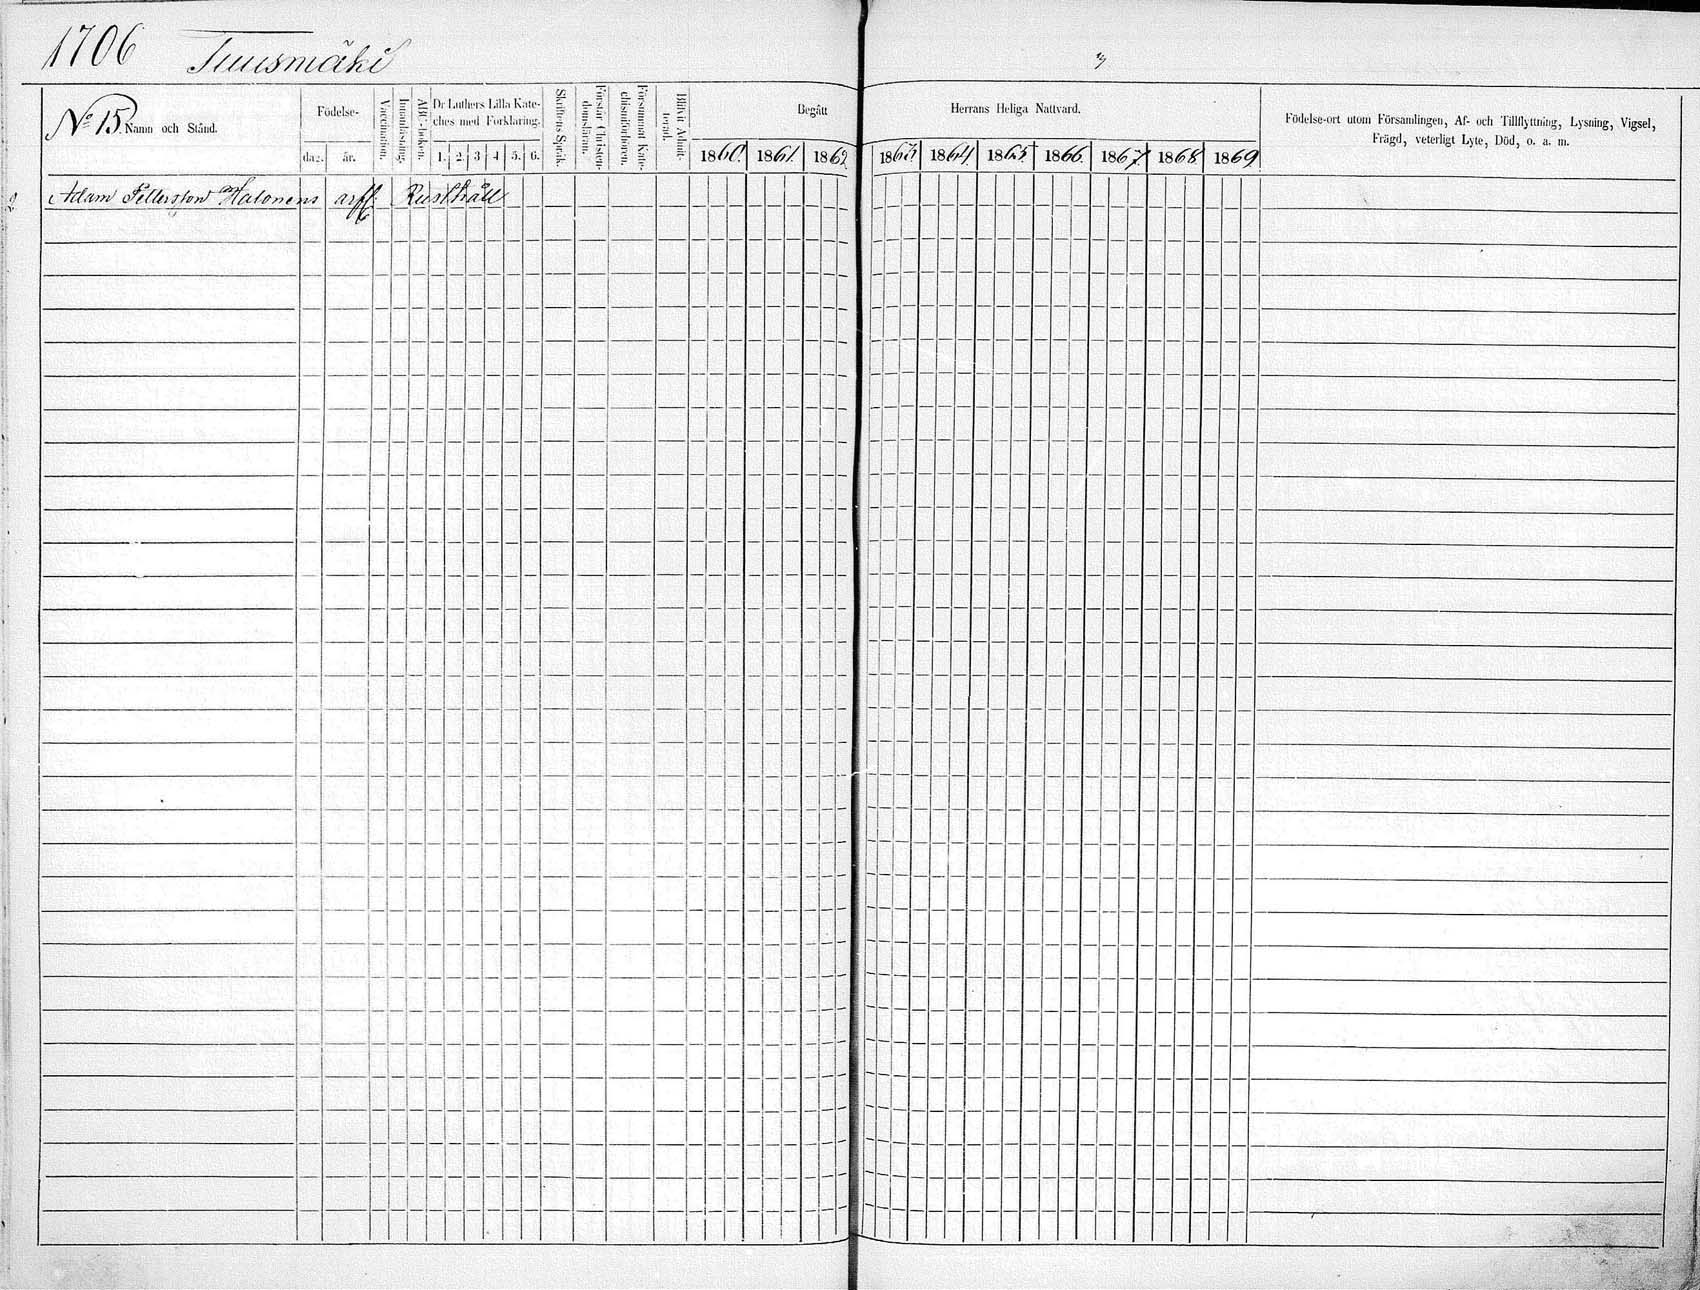 1706 Tuusmäki
No 15. Namn och Stånd.
Födelse-
dag. år.
Vaccination.
Innanläsning.
ABC-boken.
Dr Luthers Lilla Kate-
ches med Förklaring.
1. 2. 3 4 5. 6.
Skriftens Språk.
Förstår Christen-
domsläran.
Försummat Kate-
chismiförhören.
Blifvit Admit-
terad.
Begått Herrans Heliga Nattvard.
1860. 1861. 1862. 1863. 1864. 1865. 1866. 1867. 1868 1869
Födelse-ort utom Församlingen, Af- och Tillflyttning, Lysning, Vigsel,
Frägd, veterligt Lyte, Död, o. a. m.
2 Adam Pettersson Halonens arff: Rusthåll